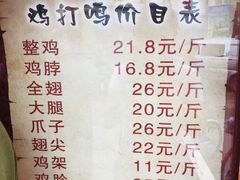 鸡打鸣价目表
整鸡 21.8元/斤
鸡脖 16.8元/斤
全翅 26元/斤
大腿 20元/斤
爪子 26元/斤
翅尖 22元/斤
鸡架 11元/斤